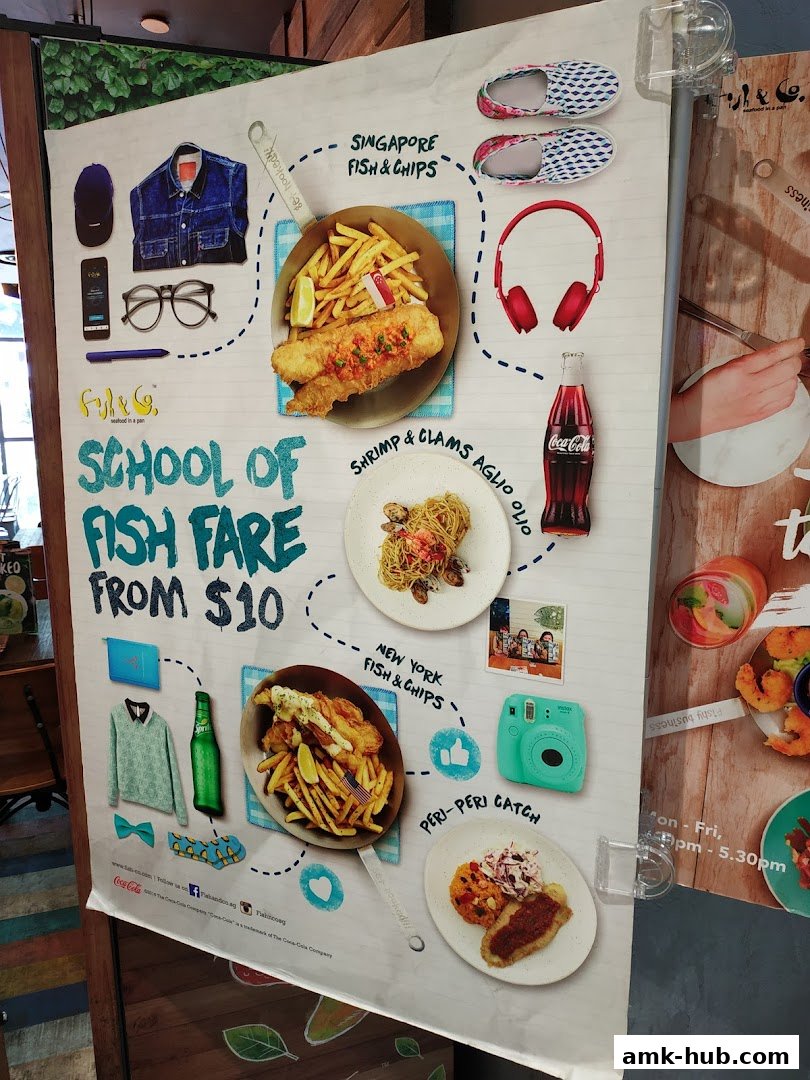 SINGAPORE
FISH & CHIPS
Fish & Co.
seafood in a pan
Fish & Co.
seafood in a pan
Coca-Cola
SHRIMP & CLAMS AGLIO OLIO
SCHOOL OF
FISH FARE
FROM $10
NEW YORK
FISH & CHIPS
Sprite
instax
PERI-PERI CATCH
Fishy business
Mon - Fri,
pm - 5.30pm
www.fish-co.com | Follow us on fishandco.sg fishncosg
Coca-Cola ©2018 The Coca-Cola Company. "Coca-Cola" is a trademark of The Coca-Cola Company
amk-hub.com